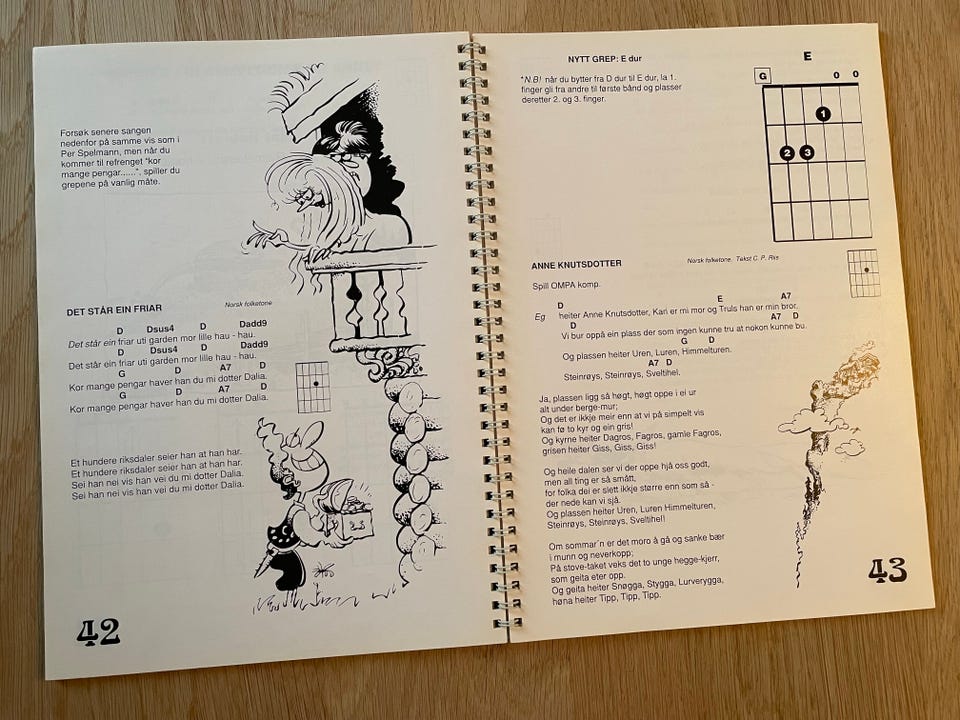 Forsøk senere sangen
nedenfor på samme vis som i
Per Spelmann, men når du
kommer til refrenget "kor
mange pengar......", spiller du
grepene på vanlig måte.
DET STÅR EIN FRIAR
Norsk folketone
D Dsus4 D Dadd9
Det står ein friar uti garden mor lille hau - hau.
D Dsus4 D Dadd9
Det står ein friar uti garden mor lille hau - hau.
G D A7 D
Kor mange pengar haver han du mi dotter Dalia.
G D A7 D
Kor mange pengar haver han du mi dotter Dalia.
Et hundere riksdaler seier han at han har.
Et hundere riksdaler seier han at han har.
Sei han nei vis han vei du mi dotter Dalia.
Sei han nei vis han vei du mi dotter Dalia.
42
NYTT GREP: E dur
*N.B! når du bytter fra D dur til E dur, la 1.
finger gli fra andre til første bånd og plasser
deretter 2. og 3. finger.
E
G 0 0
1
2 3
ANNE KNUTSDOTTER
Norsk folketone. Tekst C. P. Riis
Spill OMPA komp.
D E A7
Eg heiter Anne Knutsdotter, Kari er mi mor og Truls han er min bror,
D A7 D
Vi bur oppå ein plass der som ingen kunne tru at nokon kunne bu.
G D
Og plassen heiter Uren, Luren, Himmelturen.
A7 D
Steinrøys, Steinrøys, Sveltihel.
Ja, plassen ligg så høgt, høgt oppe i ei ur
alt under berge-mur;
Og det er ikkje meir enn at vi på simpelt vis
kan fø to kyr og ein gris!
Og kyrne heiter Dagros, Fagros, gamle Fagros,
grisen heiter Giss, Giss, Giss!
Og heile dalen ser vi der oppe hjå oss godt,
men all ting er så smått,
for folka dei er slett ikkje større enn som så -
der nede kan vi sjå.
Og plassen heiter Uren, Luren Himmelturen,
Steinrøys, Steinrøys, Sveltihel!
Om sommar´n er det moro å gå og sanke bær
i munn og neverkopp;
På stove-taket veks det to unge hegge-kjerr,
som geita eter opp.
Og geita heiter Snøgga, Stygga, Lurverygga,
høna heiter Tipp, Tipp, Tipp.
43